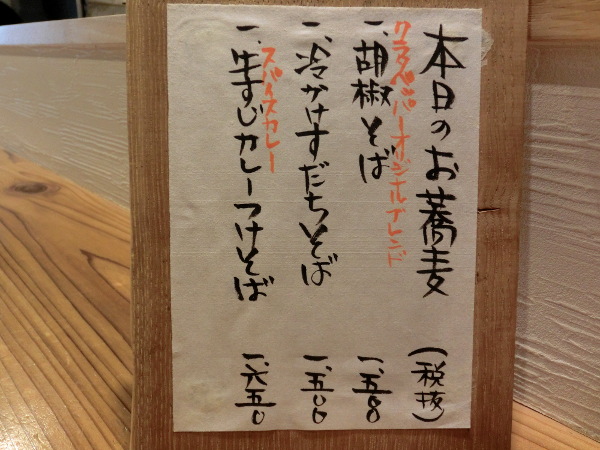 本日のお蕎麦 (税抜)
クラタペッパーオリジナルブレンド
一、胡椒そば 一、五〇〇
一、冷かけすだちそば 一、五〇〇
スパイスカレー
一、牛すじカレーつけそば 一、六五〇